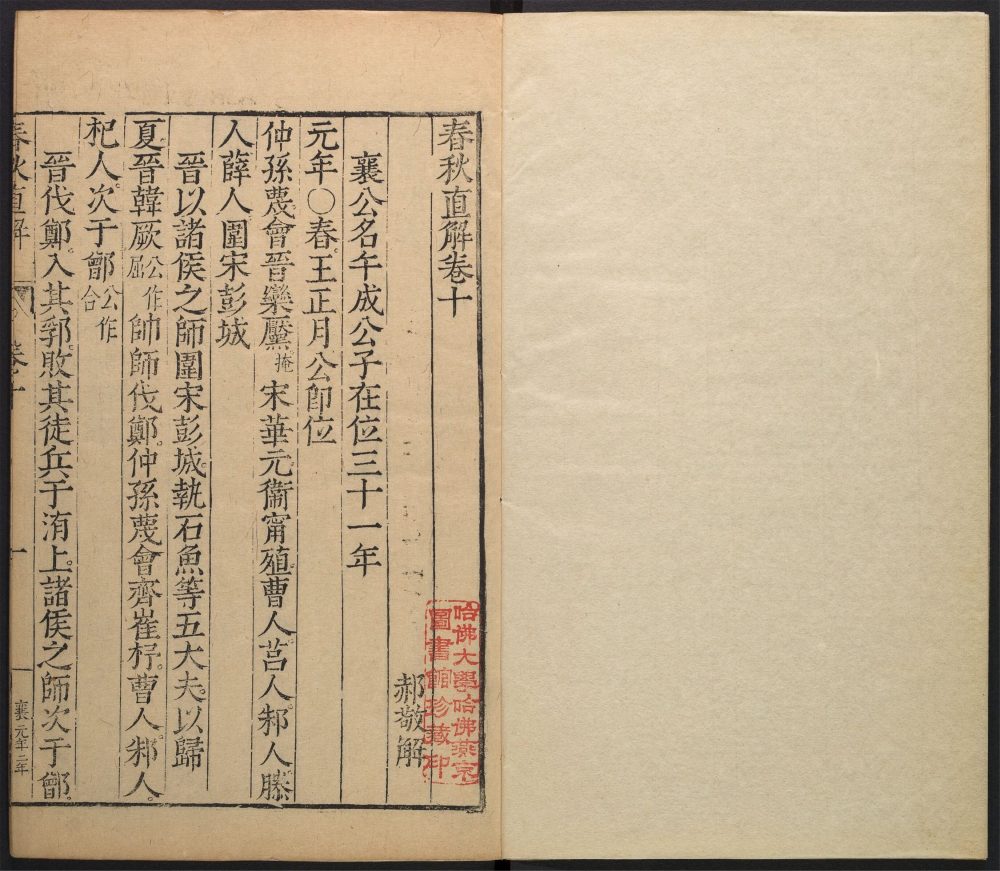 春秋直解卷十
郝敬解
襄公名午成公子在位三十一年
元年○春王正月公卽位
仲孫蔑會晉欒黶掩宋華元衞甯殖曹人莒人邾人滕
人薛人圍宋彭城
晉以諸侯之師圍宋彭城執石魚等五大夫以歸
夏晉韓厥公作屈帥師伐鄭仲孫蔑會齊崔杼曹人邾人
杞人次于鄫公作合
晉伐鄭入其郛敗其徒兵于洧上諸侯之師次于鄫
春秋直解 卷十 一 襄元年二年
哈佛大學哈佛燕京
圖書館珍藏印